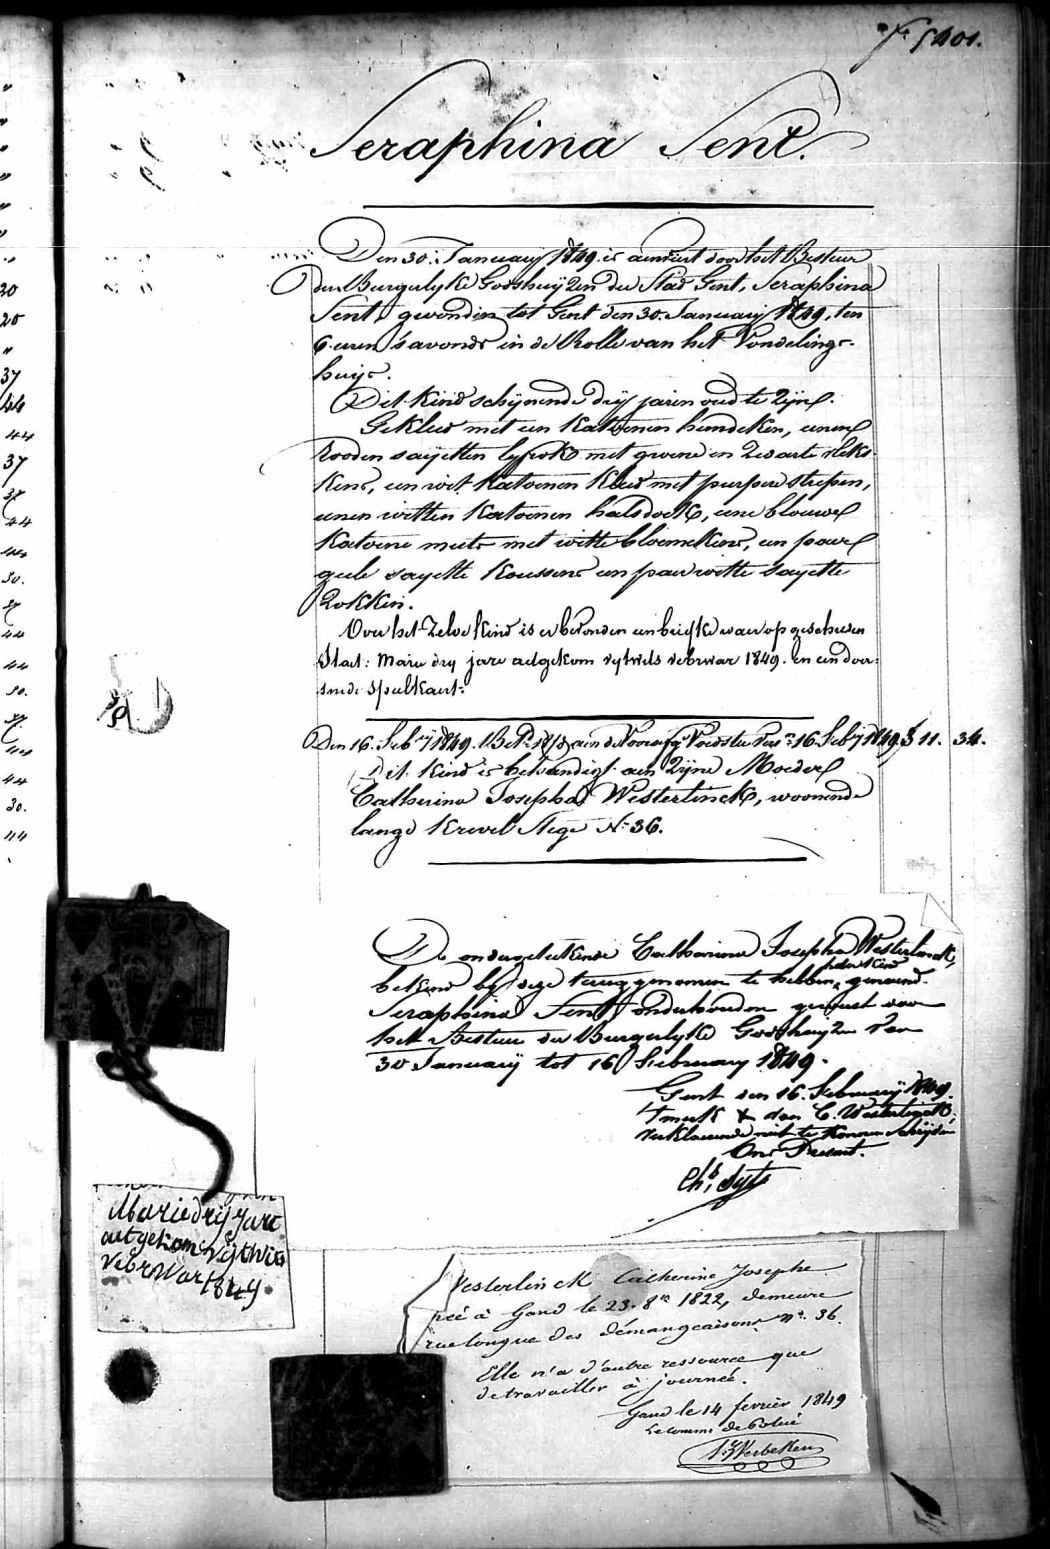 Seraphina Sent.
Den 30. January 1849. is aenveert door het Bestuer
der Burgerlyke Godshuyzen der Stad Gent, Seraphina
Sent, gevonden tot Gent den 30. January 1849, ten
6 uren 's avonds in de Rolle van het Vondelings-
huys.
Dit kind schynende dry jaren oud te zyn.
Gekleed met een katoenen hemdeken, eenen
rooden sayetten lyfrok met groene en zwarte vleks-
kens, een wit katoenen kleed met purpere strepen,
eenen witten katoenen halsdoek, eene blouwe
katoene muts met witte bloemekens, een paer
geele sayette koussens een paer witte sayette
zokken.
Over het zelve kind is er bevonden een briefke waer op geschreven
staet: Marie dry jare audgekom vytwels vebrwar 1849. En een door-
snede speelkaert.
Den 16. Feb.ry 1849. 16 Feb.ry 1849 § 11. 34.
Dit kind is behandigt aen zyne Moeder
Catherina Josepha Westerlinck, woonende
lange Krevel Stege N.º 36.
De ondergeteekende Catharina Josepha Westerlinck,
bekend by deze teruggenomen te hebben haer kind genaemd
Seraphina Sent, onderhouden geweest door
het Bestuer der Burgerlyke Godshuyzen van
30 January tot 16 February 1849.
Gent den 16. February 1849.
't merk + van C. Westerlinck,
verklarende niet te konnen schryven
Ons Present.
Marie dry Jare
audgekom vytwls
vebrwar 1849.
Westerlinck Catherine Josephe
née à Gand le 23. 8.re 1822, demeure
rue longue des démangeaisons n.º 36.
Elle n'a d'autre ressource que
de travailler à journée.
Gand le 14 fevrier 1849
Le comms. de Police
Verbeken
20
20
37
44
44
37
37
44
50.
44
44
50.
44
44
30.
44